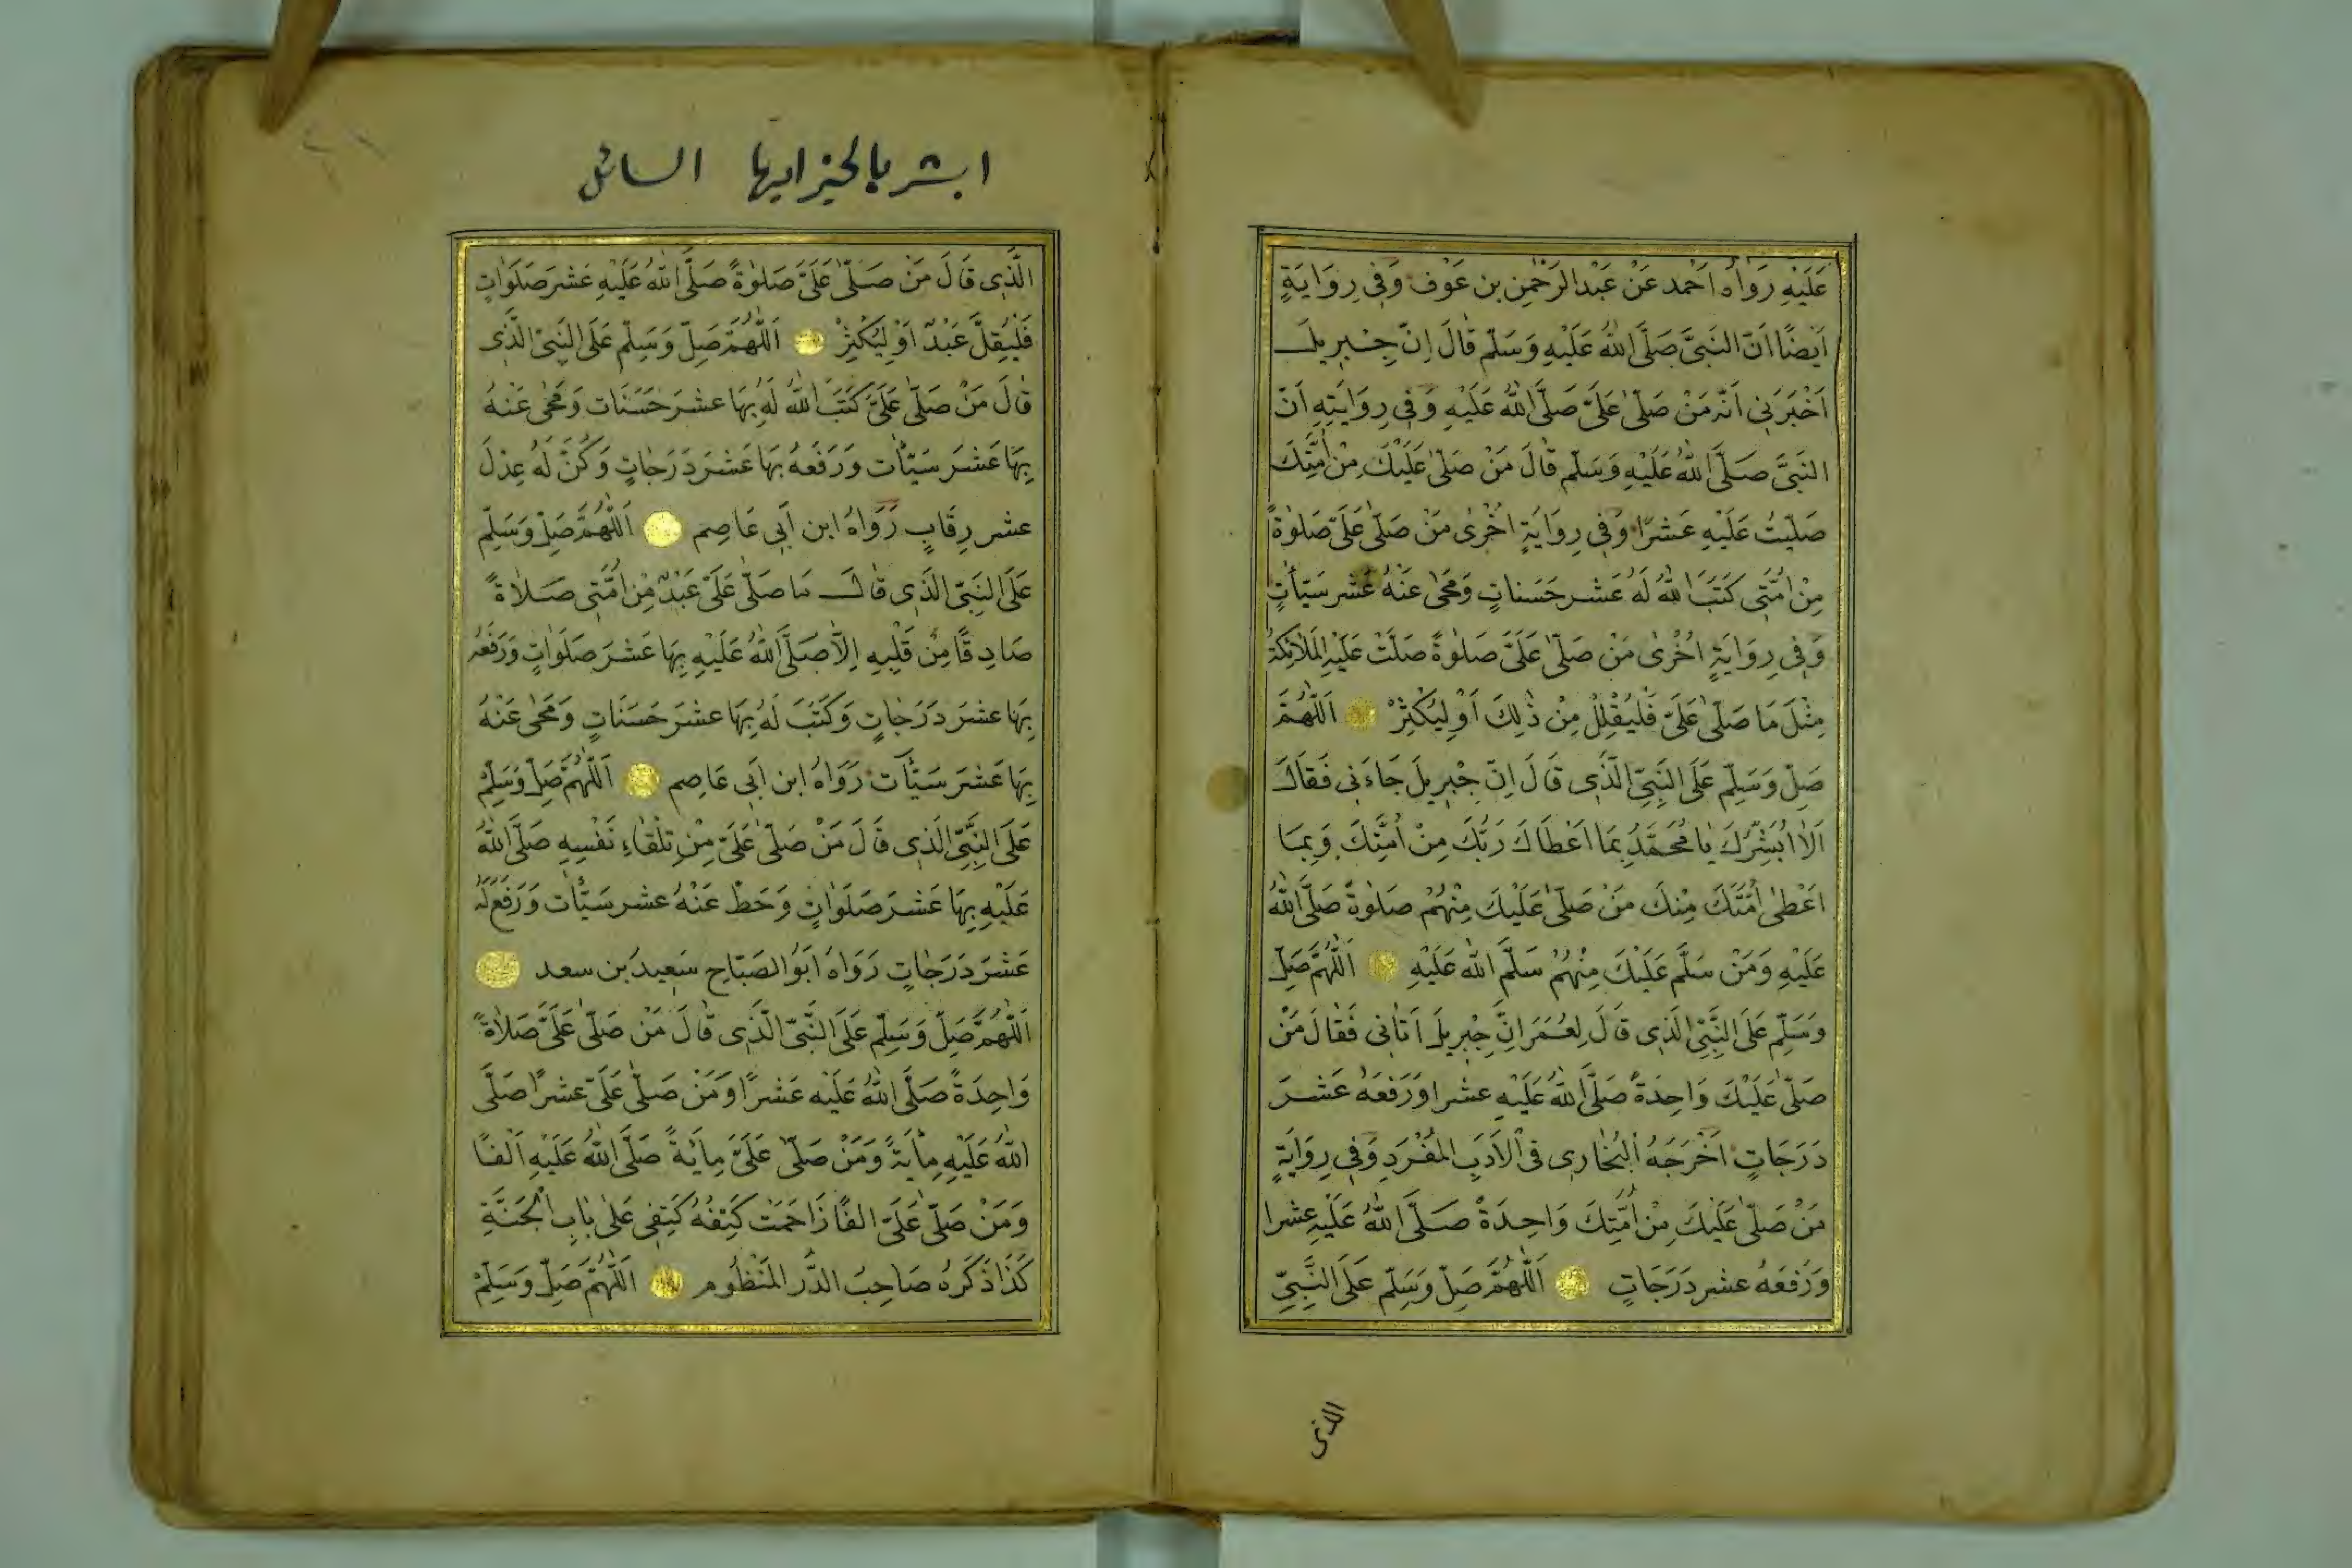 عَلَيْهِ رَوَاهُ اَحْمد عَنْ عَبْدِ الرَّحْمٰنِ بن عَوْف وَفِى رِوَايَةٍ
اَيْضًا اَنَّ النَّبِىَّ صَلَّى اللّٰهُ عَلَيْهِ وَسَلَّم قَالَ اِنَّ جِبْرِيلَ
اَخْبَرَنِى اَنَّه مَنْ صَلّىٰ عَلَىَّ صَلَّى اللّٰهُ عَلَيْهِ وَفِى رِوَايَتِهِ اَنَّ
النَّبِىَّ صَلَّى اللّٰهُ عَلَيْهِ وَسَلَّم قَالَ مَنْ صَلّىٰ عَلَيْكَ مِنْ اُمَّتِكَ
صَلَّيْتُ عَلَيْهِ عَشْرًا وَفِى رِوَايَةٍ اُخْرىٰ مَنْ صَلّىٰ عَلَىَّ صَلوٰةً
مِنْ اُمَّتِى كَتَبَ اللّٰهُ لَهُ عَشْر حَسَناتٍ وَمَحىٰ عَنْهُ عَشْر سَيِّأتٍ
وَفِى رِوَايَةٍ اُخْرىٰ مَنْ صَلّىٰ عَلَىَّ صَلوٰةً صَلَّتْ عَلَيْهِ المَلٰئِكَةُ
مِثْلَ مَا صَلّىٰ عَلَىَّ فَلْيُقْلِلْ مِنْ ذٰلِكَ اَوْ لِيُكْثِرْ اَللّٰهُمَّ
صَلِّ وَسَلِّم عَلَى النَّبِىِّ الَّذِى قَالَ اِنَّ جِبْرِيلَ جَاءَنِى فَقَالَ
اَلاٰ اُبَشِّرُكَ يٰا مُحَمَّدُ بِمَا اَعْطَاكَ رَبُّكَ مِنْ اُمَّتِكَ وَبِمَا
اَعْطىٰ اُمَّتَكَ مِنْكَ مَنْ صَلّىٰ عَلَيْكَ مِنْهُمْ صَلوٰةً صَلَّى اللّٰهُ
عَلَيْهِ وَمَنْ سَلَّم عَلَيْكَ مِنْهُمْ سَلَّم اللّٰه عَلَيْهِ اَللّٰهُمَّ صَلِّ
وَسَلِّم عَلَى النَّبِىِّ الَّذِى قَالَ لِعُمَرَ اِنَّ جِبْرِيلَ اَتَانِى فَقَالَ مَنْ
صَلّىٰ عَلَيْكَ وَاحِدَةً صَلَّى اللّٰهُ عَلَيْهِ عشرا وَرَفَعَهُ عَشْرَ
دَرَجَاتٍ اَخْرَجَهُ الْبُخَارِى فِى الْاَدَبِ المُفْرَدِ وَفِى رِوَايَةٍ
مَنْ صَلّىٰ عَلَيْكَ مِنْ اُمَّتِكَ وَاحِدَةً صَلَّى اللّٰهُ عَلَيْهِ عشرا
وَرَفَعَهُ عشر دَرَجَاتٍ اَللّٰهُمَّ صَلِّ وَسَلِّم عَلَى النَّبِىِّ
الذى
ابشر بالخير ايها السائل
الَّذِى قَالَ مَنْ صَلّىٰ عَلَىَّ صَلوٰةً صَلَّى اللّٰهُ عَلَيْهِ عَشْرَ صَلَوَاتٍ
فَلْيُقِلَّ عَبْدٌ اَوْ لِيُكْثِرْ اَللّٰهُمَّ صَلِّ وَسَلِّم عَلَى النَّبِىِّ الَّذِى
قَالَ مَنْ صَلّىٰ عَلَىَّ كَتَبَ اللّٰهُ لَهُ بِهَا عشرَ حَسَنَات وَمَحىٰ عَنْهُ
بِهَا عَشْرَ سَيِّأت وَرَفَعَهُ بِهَا عَشْرَ دَرَجٰاتٍ وَكُنَّ لَهُ عِدْلَ
عشر رِقَابٍ رَوَاهُ ابن اَبِى عَاصِم اَللّٰهُمَّ صَلِّ وَسَلِّم
عَلَى النَّبِىِّ الَّذِى قَالَ مَا صَلّىٰ عَلَىَّ عَبْدٌ مِنْ اُمَّتِى صَلاٰةً
صَادِقًا مِنْ قَلْبِهِ اِلاَّ صَلَّى اللّٰهُ عَلَيْهِ بِهَا عَشْرَ صَلَوٰاتٍ وَرَفَعَهُ
بِهَا عشرَ دَرَجٰاتٍ وَكَتَبَ لَهُ بِهَا عشرَ حَسَنَاتٍ وَمَحىٰ عَنْهُ
بِهَا عَشْرَ سَيِّأت رَوَاهُ ابن اَبِى عَاصِم اَللّٰهُمَّ صَلِّ وَسَلِّمْ
عَلَى النَّبِىِّ الَّذِى قَالَ مَنْ صَلّىٰ عَلَىَّ مِنْ تِلْقَاءِ نَفْسِهِ صَلَّى اللّٰهُ
عَلَيْهِ بِهَا عَشْرَ صَلَوَاتٍ وَحَطَّ عَنْهُ عشر سَيِّأت وَرَفَعَ لَهُ
عَشْرَ دَرَجٰاتٍ رَوَاهُ اَبُو الصَبّاحِ سَعِيدُ بن سعد
اَللّٰهُمَّ صَلِّ وَسَلِّم عَلَى النَّبِىِّ الَّذِى قَالَ مَنْ صَلّىٰ عَلَىَّ صَلاٰةً
وَاحِدَةً صَلَّى اللّٰهُ عَلَيْهِ عَشْرًا وَمَنْ صَلّىٰ عَلَىَّ عشرًا صَلَّى
اللّٰهُ عَلَيْهِ مِأيَةً وَمَنْ صَلّىٰ عَلَىَّ مِايَةً صَلَّى اللّٰهُ عَلَيْهِ اَلْفًا
وَمَنْ صَلّىٰ عَلَىَّ الفًا زَاحَمَتْ كَتِفُهُ كَتِفِى عَلىٰ بَابِ الْجَنَّةِ
كَذَا ذَكَرَهُ صَاحِبُ الدُّر المَنْظُوم اَللّٰهُمَّ صَلِّ وَسَلِّمْ